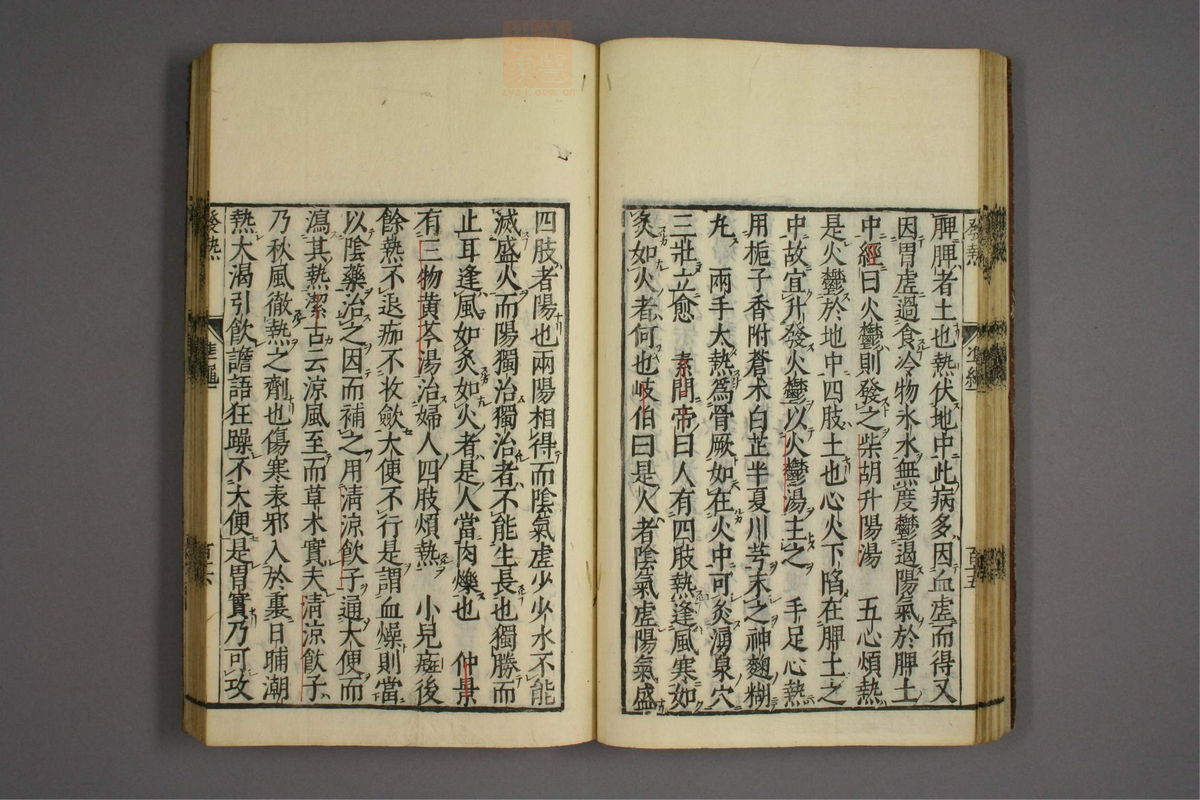 脾脾者土也熱伏地中此病多因血虛而得又
因胃虛過食冷物氷水無度鬱遏陽氣於脾土
中經曰火鬱則發之柴胡升陽湯　五心煩熱
是火鬱於地中四肢土也心火下陷在脾土之
中故宜升發火鬱以火鬱湯主之　手足心熱
用梔子香附蒼术白芷半夏川芎末之神麴糊
丸　兩手大熱爲骨厥如在火中可灸湧泉穴
三壯立愈　素問帝曰人有四肢熱逢風寒如
炙如火者何也岐伯曰是人者陰氣虛陽氣盛
四肢者陽也兩陽相得而陰氣虛少少水不能
滅盛火而陽獨治獨治者不能生長也獨勝而
止耳逢風如炙如火者是人當肉爍也　仲景
有三物黄芩湯治婦人四肢煩熱　小兒痘後
餘熱不退痂不收歛大便不行是謂血燥則當
以陰藥治之因而補之用清涼飲子通大便而
瀉其熱潔古云涼風至而草木實夫清涼飲子
乃秋風徹熱之劑也傷寒表邪入於裏日晡潮
熱大渴引飲譫語狂躁不大便是胃實乃可攻
發熱
準繩
百十五
發熱
準繩
百十六